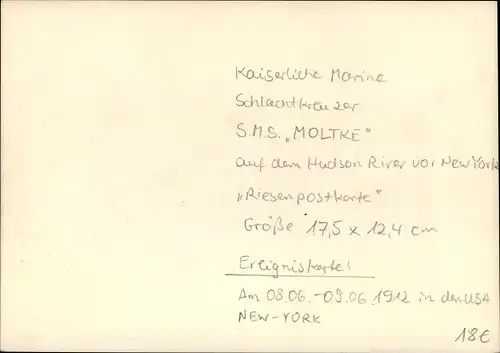 Kaiserliche Marine
Schlachtkreuzer
S.M.S. „MOLTKE"
auf dem Hudson River vor New York
„Riesenpostkarte"
Größe 17,5 x 12,4 cm
Ereigniskarte!
Am 08.06.-09.06.1912 in den USA
NEW-YORK
18€